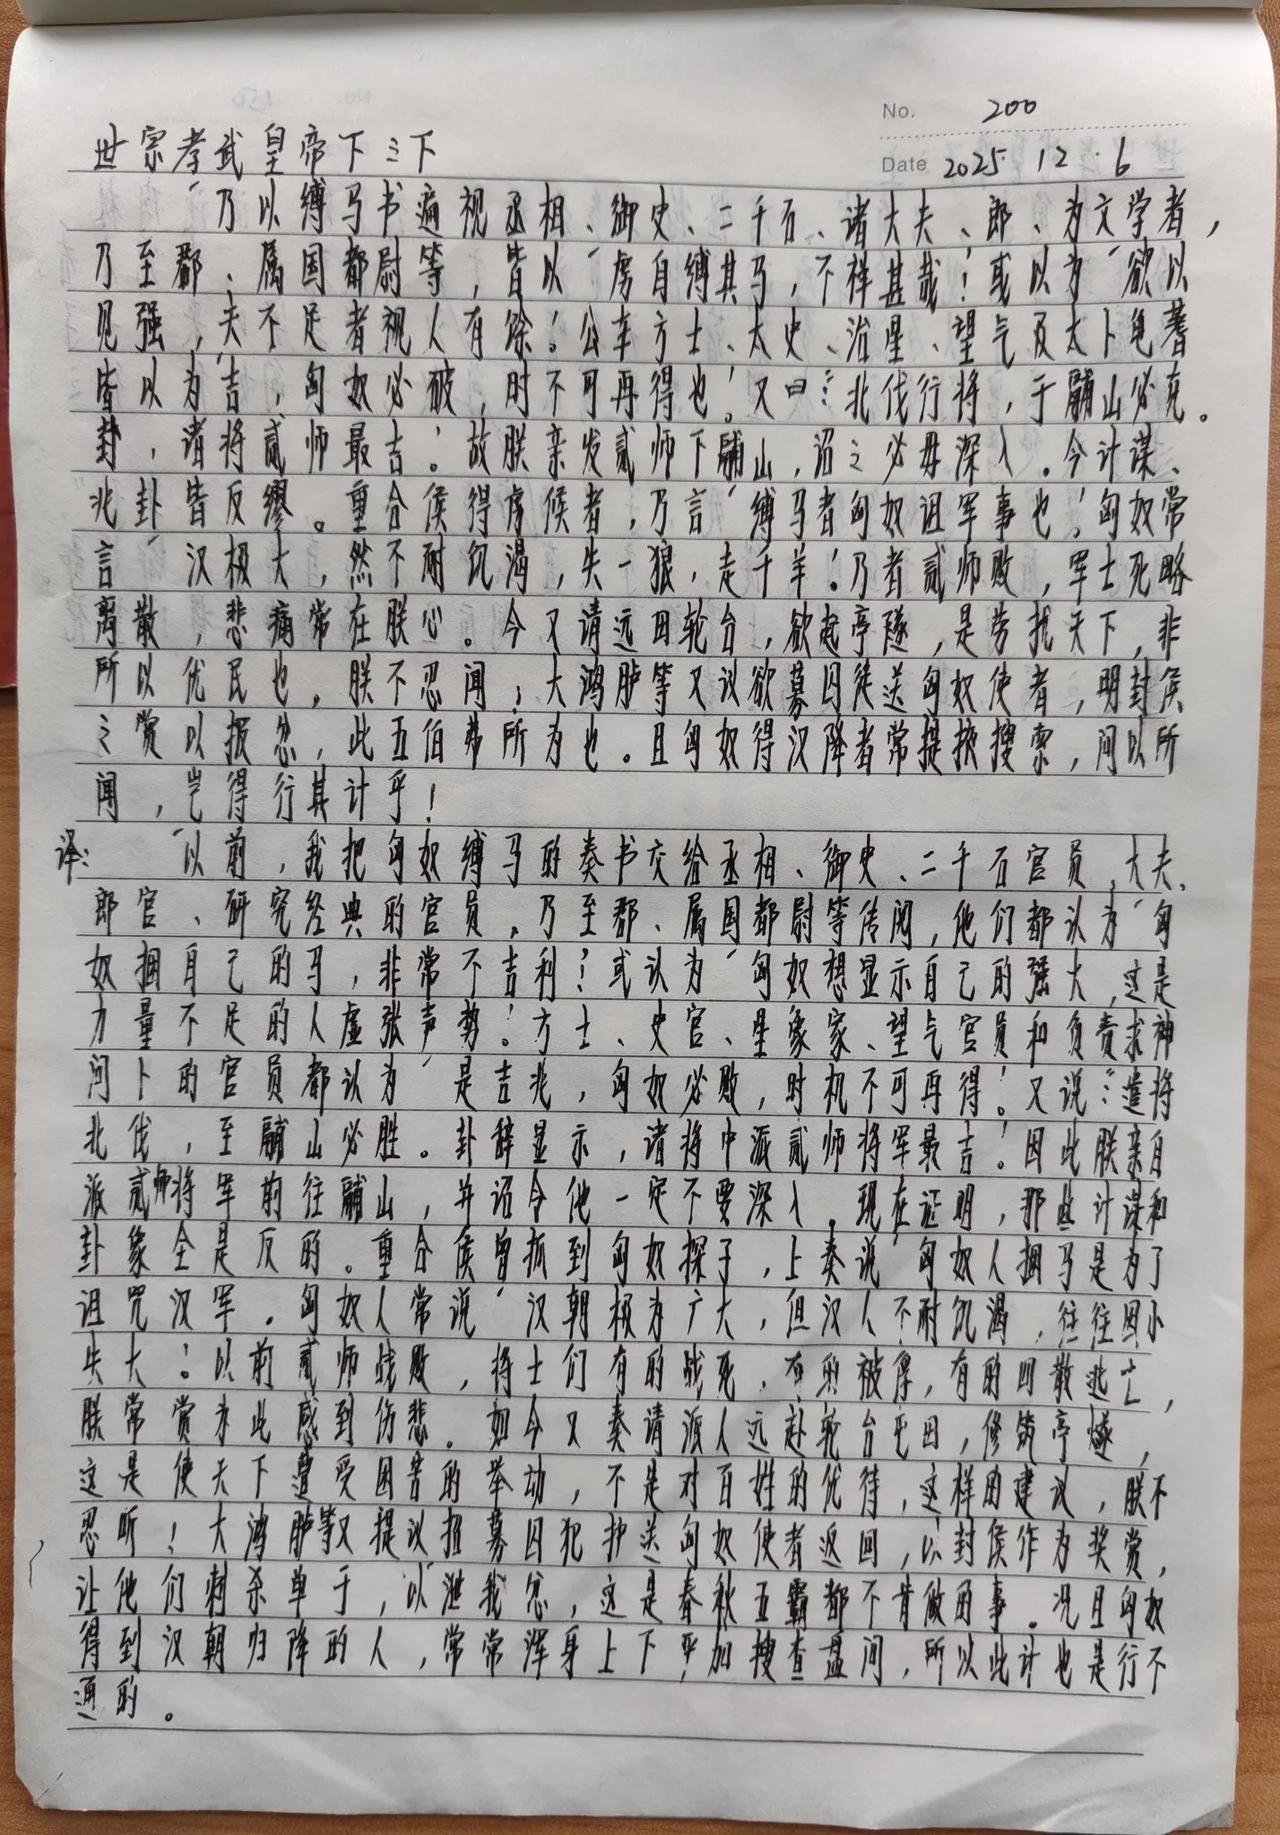 No. 200
世宗孝武皇帝下之下
Date 2025.12.6
“乃以缚马书遍视丞相、御史、二千石、诸大夫、郎、为文学者,
乃至郡、属国都尉等,皆以“虏自缚其马,不祥甚哉!或以为“欲以
见强,夫不足者视人有馀!公车方士、太史、治星、望气及太卜龟蓍
皆以为吉,匈奴必破,时不可再得也!又曰:“北伐行将,于鬴山必克。
封,诸将贰师最吉!故朕亲发贰师下鬴山,诏之必毋深入。今计谋、
兆卦皆反缪。重合侯得虏候者,乃言“缚马者匈奴诅军事也!匈奴常
言“汉极大,然不耐饥渴,失一狼,走千羊!乃者贰师败,军士死略
离散,悲痛常在朕心。今又请远田轮台,欲起亭隧,是劳扰天下,非
所以优民也,朕不忍闻;大鸿胪等又议欲募囚徒送匈奴使者,明封侯
之赏以报忿,此五伯弗所为也。且匈奴得汉降者常提掖搜索,问以所
闻,岂得行其计乎!
译:“以前,我把匈奴缚马的奏书交给丞相、御史、二千石官员,大夫、
郎官、研究经典的官员,乃至郡、属国都尉等传阅,他们都认为“匈
奴捆自己的马,非常不吉利!或认为“匈奴想显示自己的强大,这是
力量不足的人虚张声势!方士、史官、星象家、望气官员和负责求神
问卜的官员都认为“是吉兆,匈奴必败,时机不可再得!又说:“遣将
北伐,至鬴山必胜。卦辞显示,诸将中派贰师将军最吉!因此朕亲自
派贰师将军前往鬴山,并诏令他一定不要深入。现在证明,那些计谋和
卦象全是反的。重合侯曾抓到匈奴探子,上奏说“匈奴人捆马是为了
诅咒汉军。匈奴人常说“汉朝极为广大,但汉人不耐饥渴,往往因小
失大!以前贰师战败,将士们有的战死,有的被俘,有的四散逃亡,
朕常常为此感到伤悲。如今又奏请派人远赴轮台屯田,修筑亭燧,
这是使天下遭受困苦的举动,不是对百姓的优待,这样的建议,朕不
忍听!大鸿胪等又提议招募囚犯护送匈奴使者返回,以封侯作为奖赏,
让他们刺杀单于,以泄我忿,这是春秋五霸都不肯做的事。况且匈奴
得到汉朝归降的人,常常浑身上下严加搜查盘问,所以此计也是行不
通的。